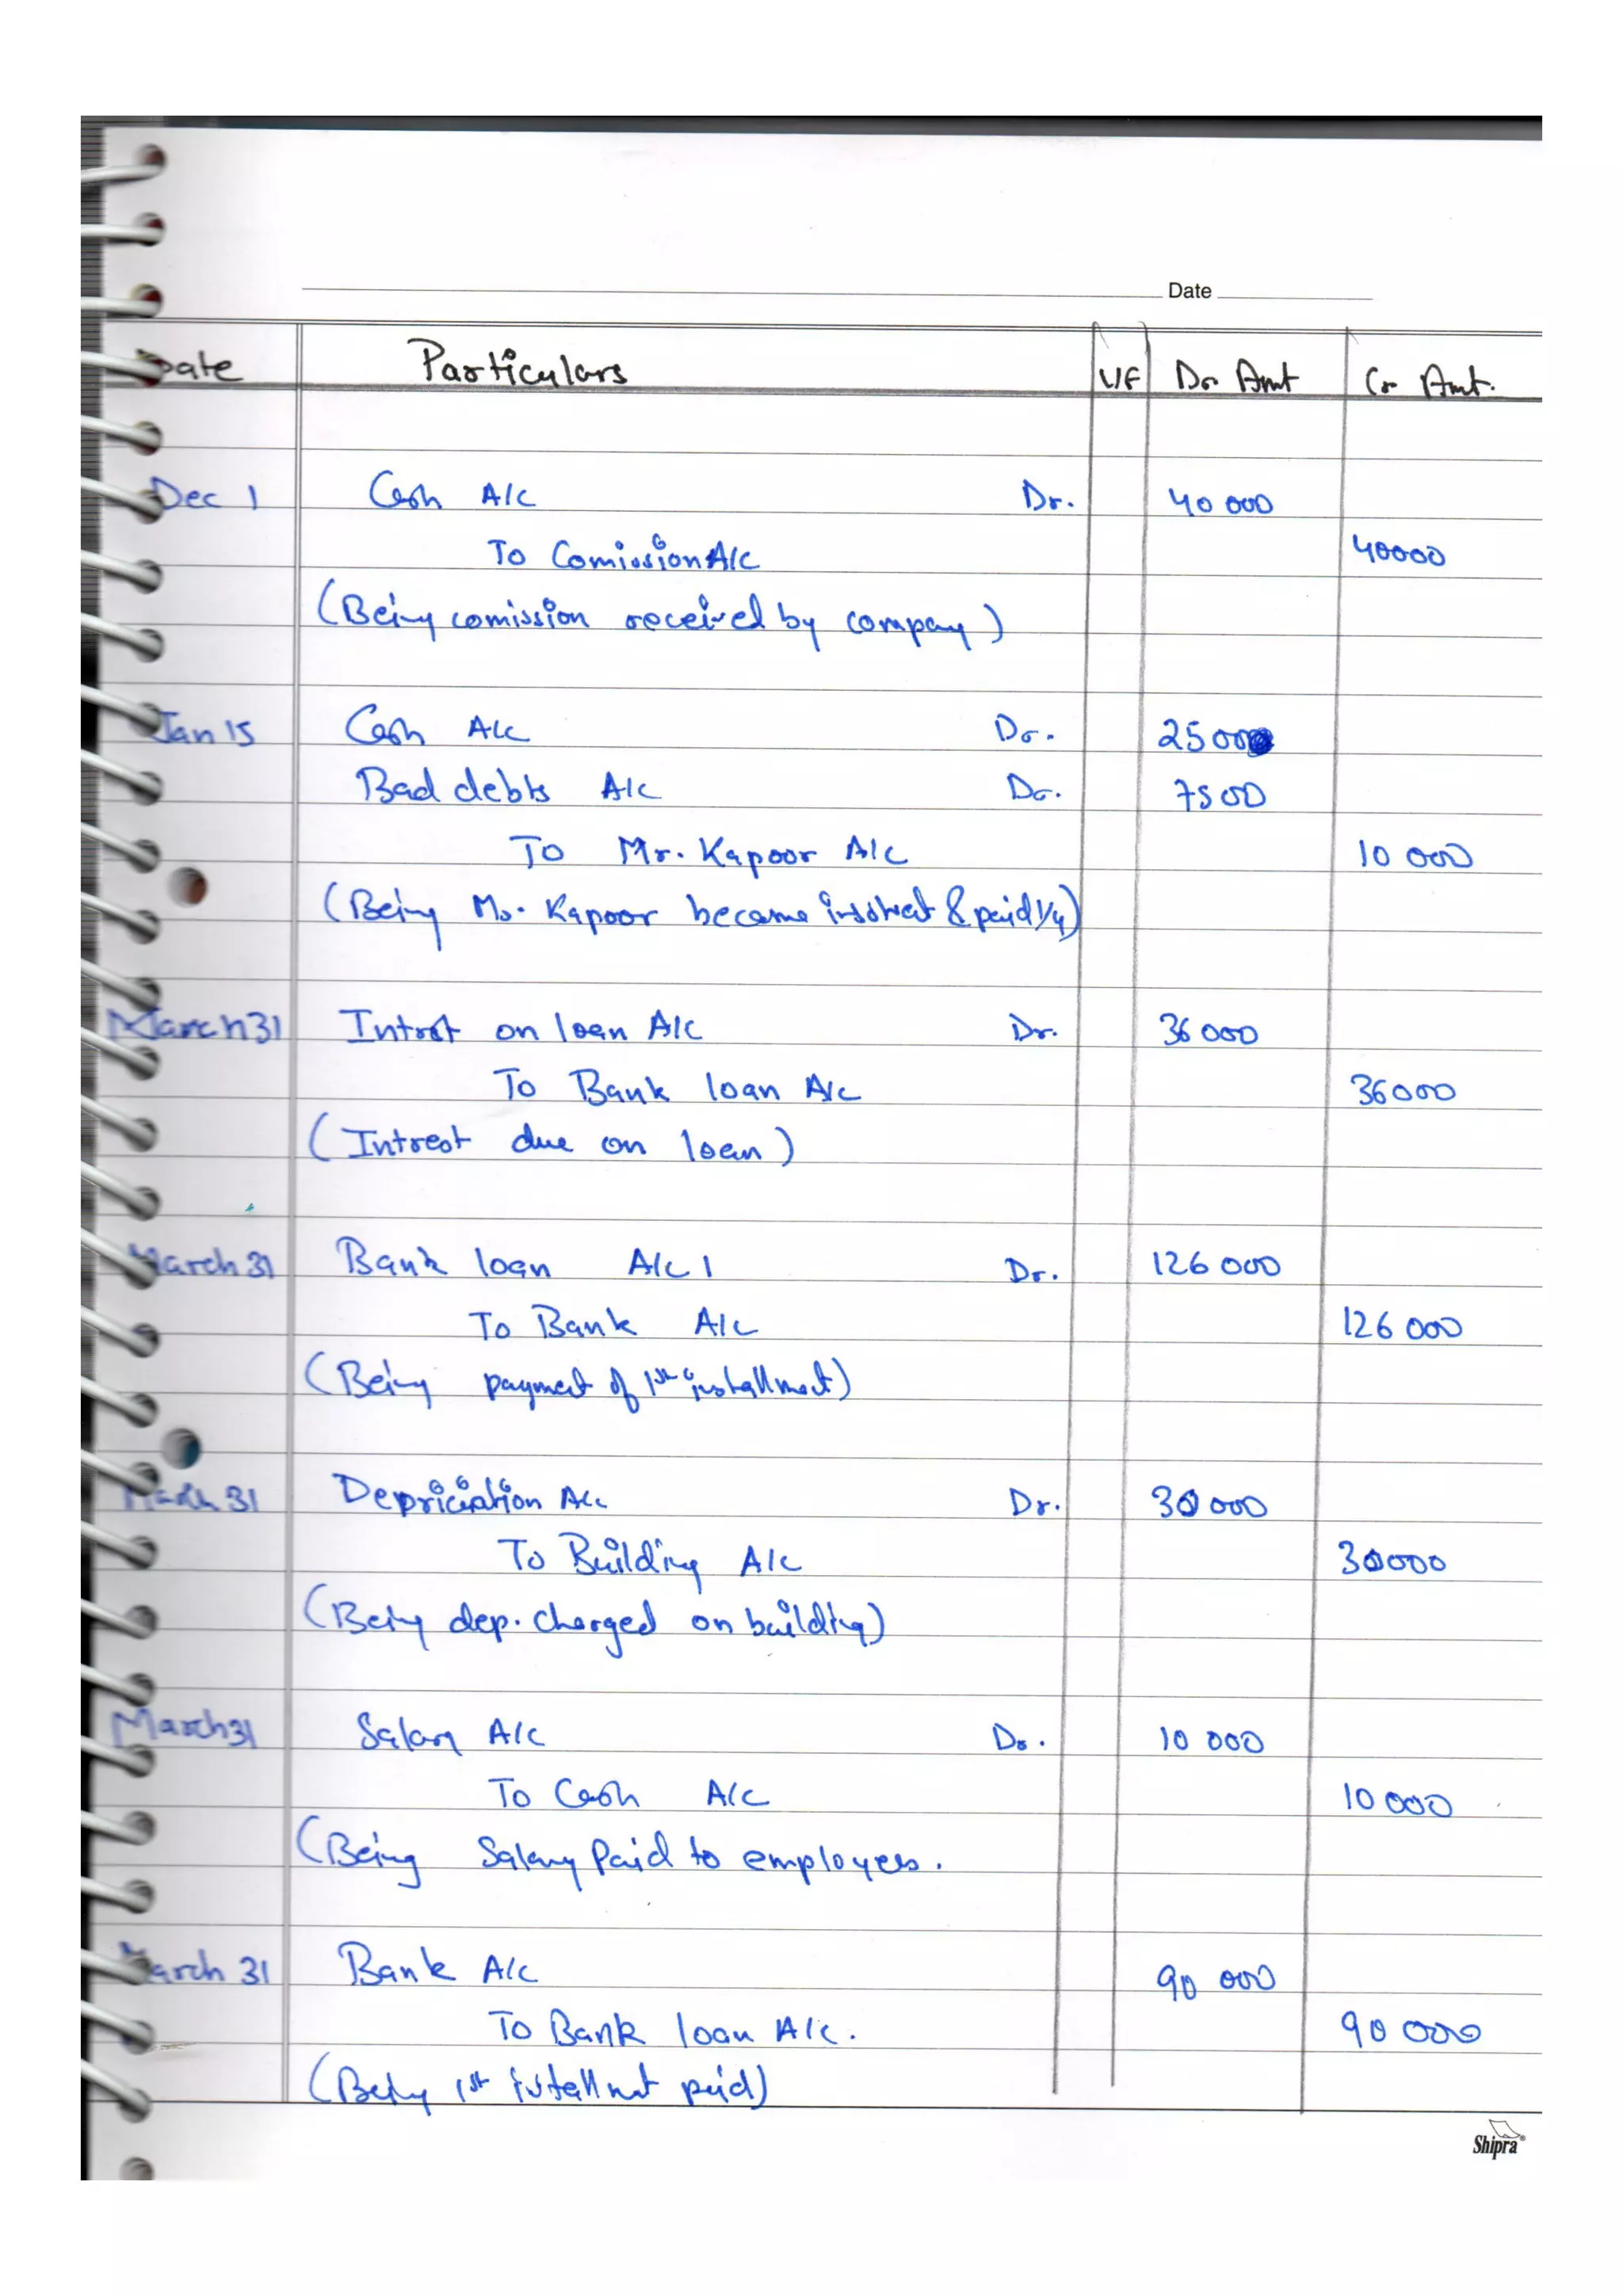 Date
Date Particulars L/F Dr Amt Cr Amt.
Dec 1 Cash A/c Dr. 40 000
To Comission A/c 40000
(Being comission received by company)
Jan 15 Cash A/c Dr. 2500
Bad debts A/c Dr. 7500
To Mr. Kapoor A/c 10 000
(Being Mr. Kapoor became insolvent & paid 1/4)
March 31 Intrest on loan A/c Dr. 36 000
To Bank loan A/c 36000
(Intrest due on loan)
March 31 Bank loan A/c 1 Dr. 126 000
To Bank A/c 126 000
(Being payment of 1st installment)
March 31 Depriciation A/c Dr. 30 000
To Building A/c 30000
(Being dep. charged on building)
March 31 Salary A/c Dr. 10 000
To Cash A/c 10 000
(Being Salary Paid to employees.
March 31 Bank A/c 90 000
To Bank loan A/c. 90 000
(Being 1st installment paid)
Shipra